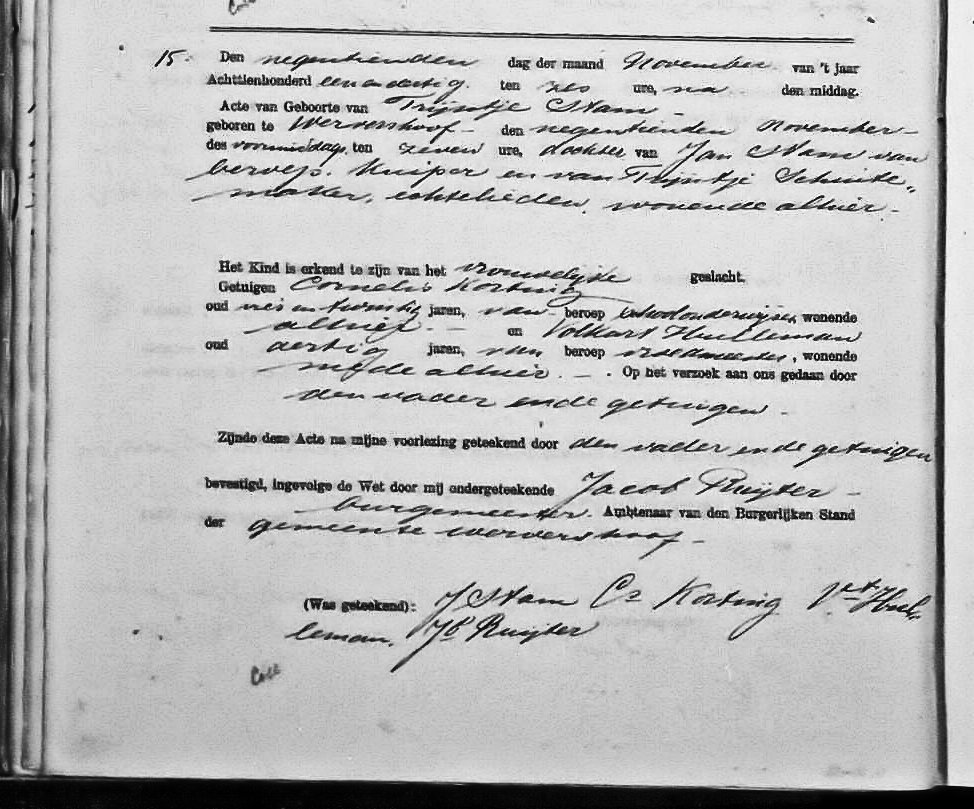 15. Den negentienden dag der maand November van 't jaar
Achttienhonderd een en dertig ten zes ure, na den middag.
Acte van Geboorte van Trijntje Stam -
geboren te Wervershoof - den negentienden November -
des voormiddags ten zeven ure, dochter van Jan Stam van
beroep. Kuiper en van Trijntje Schuite„
maker, echtelieden, wonende alhier -
Het Kind is erkend te zijn van het vrouwelijke geslacht.
Getuigen Cornelis Korting
oud en twintig jaren, van beroep schoolonderwijzer, wonende
alhier - - en Volkert Hulleman
oud dertig jaren, van beroep vroedmeester, wonende
mede alhier. - . Op het verzoek aan ons gedaan door
den vader en de getuigen -
Zijnde deze Acte na mijne voorlezing geteekend door den vader en de getuigen
bevestigd, ingevolge de Wet door mij ondergeteekende Jacob Ruijter -
burgemeester. Ambtenaar van den Burgerlijken Stand
der gemeente Wervershoof -
(Was geteekend): J Stam Cs Korting Vt Hul„
leman. Jb Ruijter
Coll